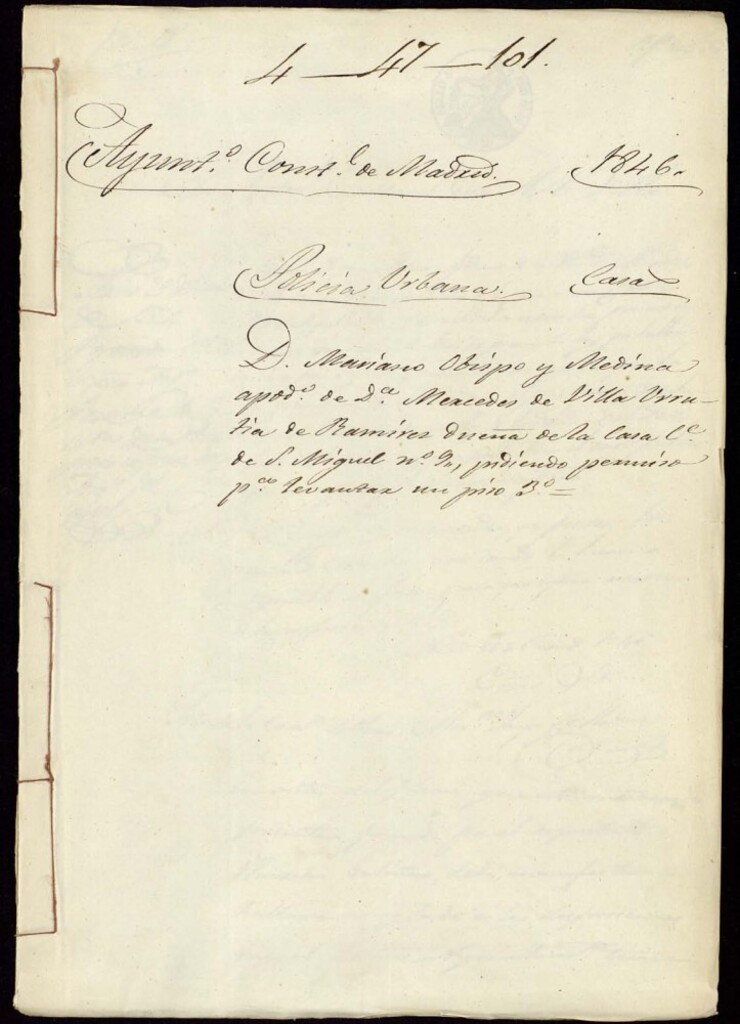 4-47-101.
Ayunt.º Const.l de Madrid. 1846.
Policia Urbana. Casas
D. Mariano Obispo y Medina
apod.º de D.ª Mercedes de Villa Urru-
tia de Ramirez dueña de la Casa C.e
de S. Miguel nº 9, pidiendo permiso
p.ª levantar un piso 3.º =